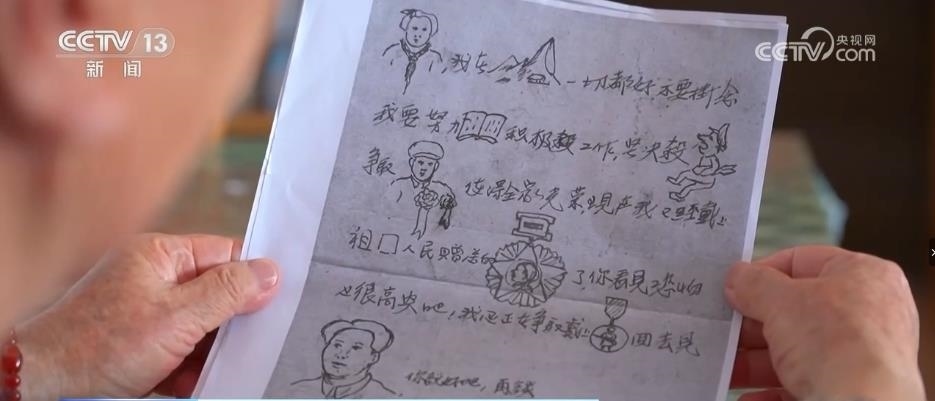 CCTV 13
新闻
CCTV 央视网
com
,我在 一切都好不要掛念
我要努力 积极 工作,坚决殺
争取 使得全家光荣,現在我已經戴上
祖囗人民贈送的 了你看見了
也很高央吧,我还正在争取戴上 回去見
你說好吧,再談